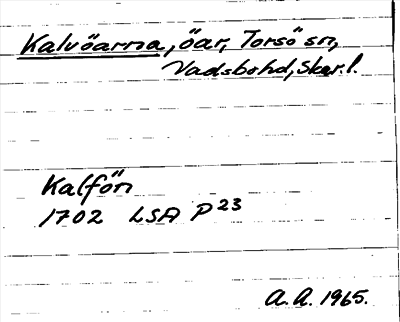 Kalvöarna, öar, Torsö sn,
Vadsbohd, Skar. l.
Kalfön
1702 LSA P23
A.A. 1965.